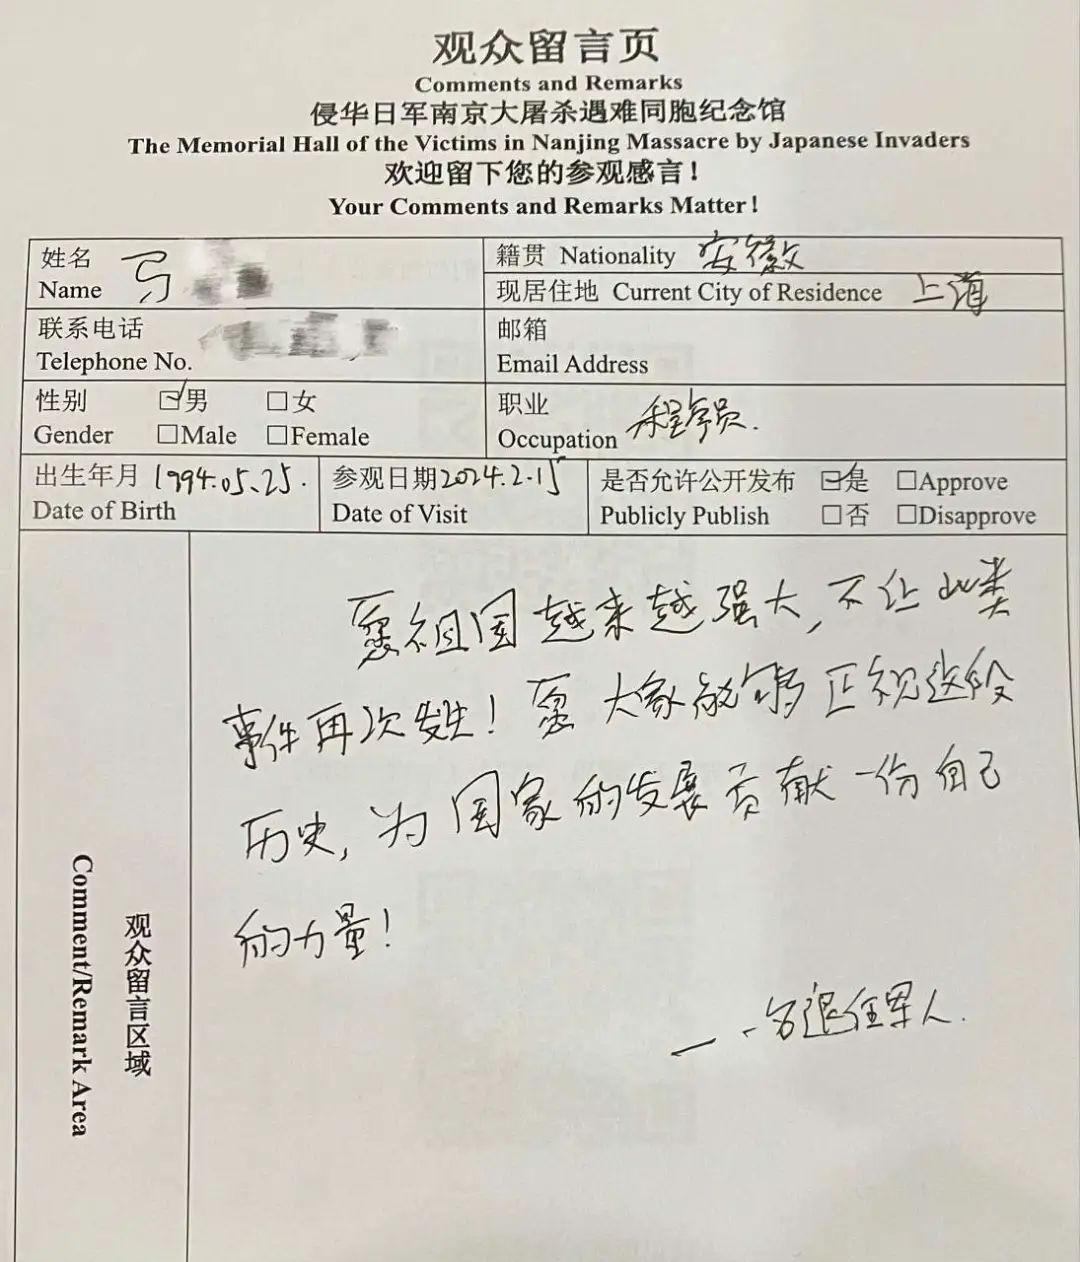 观众留言页
Comments and Remarks
侵华日军南京大屠杀遇难同胞纪念馆
The Memorial Hall of the Victims in Nanjing Massacre by Japanese Invaders
欢迎留下您的参观感言！
Your Comments and Remarks Matter！
姓名
Name
籍贯 Nationality 安徽
现居住地 Current City of Residence 上海
联系电话
Telephone No.
邮箱
Email Address
性别 ☑男 □女
Gender □Male □Female
职业
Occupation 程序员.
出生年月 1994.05.25.
Date of Birth
参观日期 2024.2.15
Date of Visit
是否允许公开发布 ☑是 □Approve
Publicly Publish □否 □Disapprove
观众留言区域
Comment/Remark Area
愿祖国越来越强大,不让此类
事件再次发生!愿大家能够正视这段
历史,为国家的发展贡献一份自己
的力量!
— 一名退伍军人.